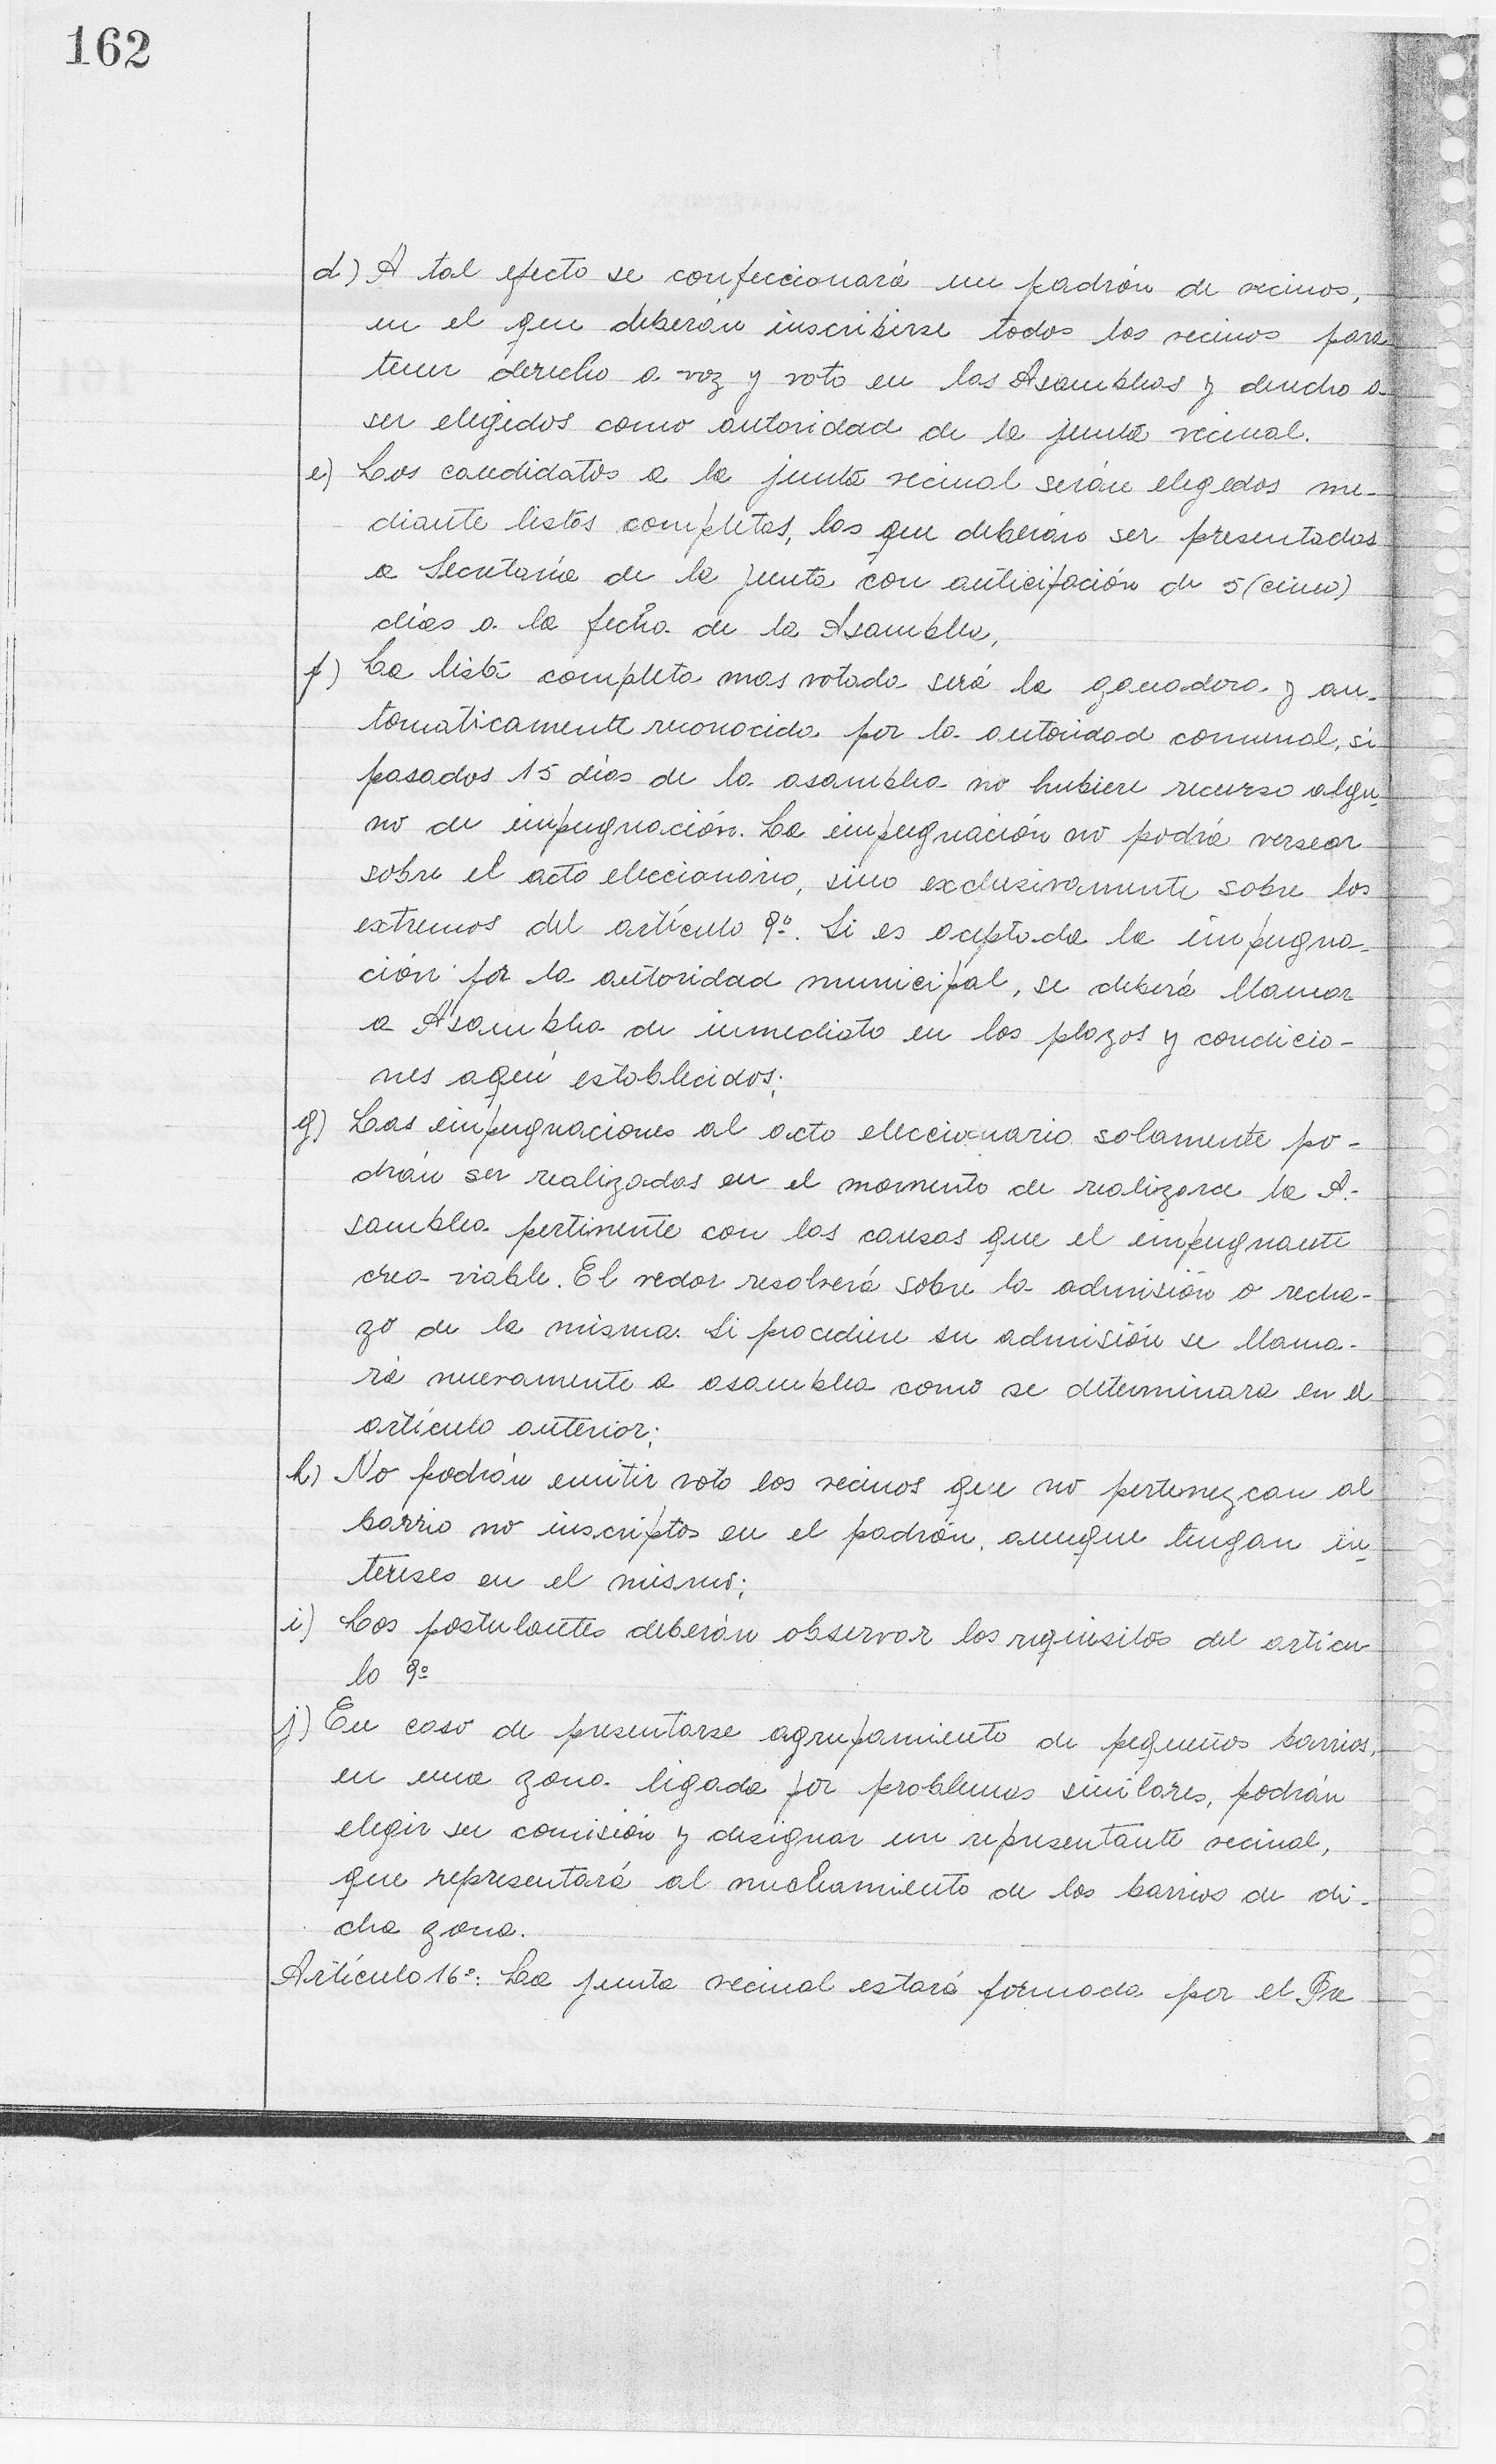 162
d) A tal efecto se confeccionará un padrón de vecinos,
en el que deberán inscribirse todos los vecinos para
tener derecho a voz y voto en las Asambleas y derecho a
ser elegidos como autoridad de la junta vecinal.
e) Los candidatos a la junta vecinal serán elegidos me-
diante listas completas, las que deberán ser presentadas
a Secretaría de la junta con anticipación de 5 (cinco)
días a la fecha de la Asamblea,
f) La lista completa mas votada será la ganadora y au-
tomaticamente reconocida por la autoridad comunal, si
pasados 15 días de la asamblea no hubiere recurso algu-
no de impugnación. La impugnación no podrá versear
sobre el acto eleccionario, sino exclusivamente sobre los
extremos del artículo 9º. Si es aceptada la impugna-
ción por la autoridad municipal, se deberá llamar
a Asamblea de inmediato en los plazos y condicio-
nes aquí establecidos;
g) Las impugnaciones al acto eleccionario solamente po-
drán ser realizadas en el momento de realizarce la A-
samblea pertinente con las causas que el impugnante
crea viable. El vedor resolverá sobre la admisión o recha-
zo de la misma. Si procediere su admisión se llama-
rá nuevamente a asamblea como se determinara en el
artículo anterior;
h) No podrán emitir voto los vecinos que no pertenezcan al
barrio no inscriptos en el padrón, aunque tengan in-
tereses en el mismo;
i) Los postulantes deberán observar los requisitos del artícu
lo 9º
j) En caso de presentarse agrupamiento de pequeños barrios,
en una zona ligada por problemas similares, podrán
elegir su comisión y designar un representante vecinal,
que representará al nucleamiento de los barrios de di-
cha zona.
Artículo 16º: La junta vecinal estará formada por el Pre